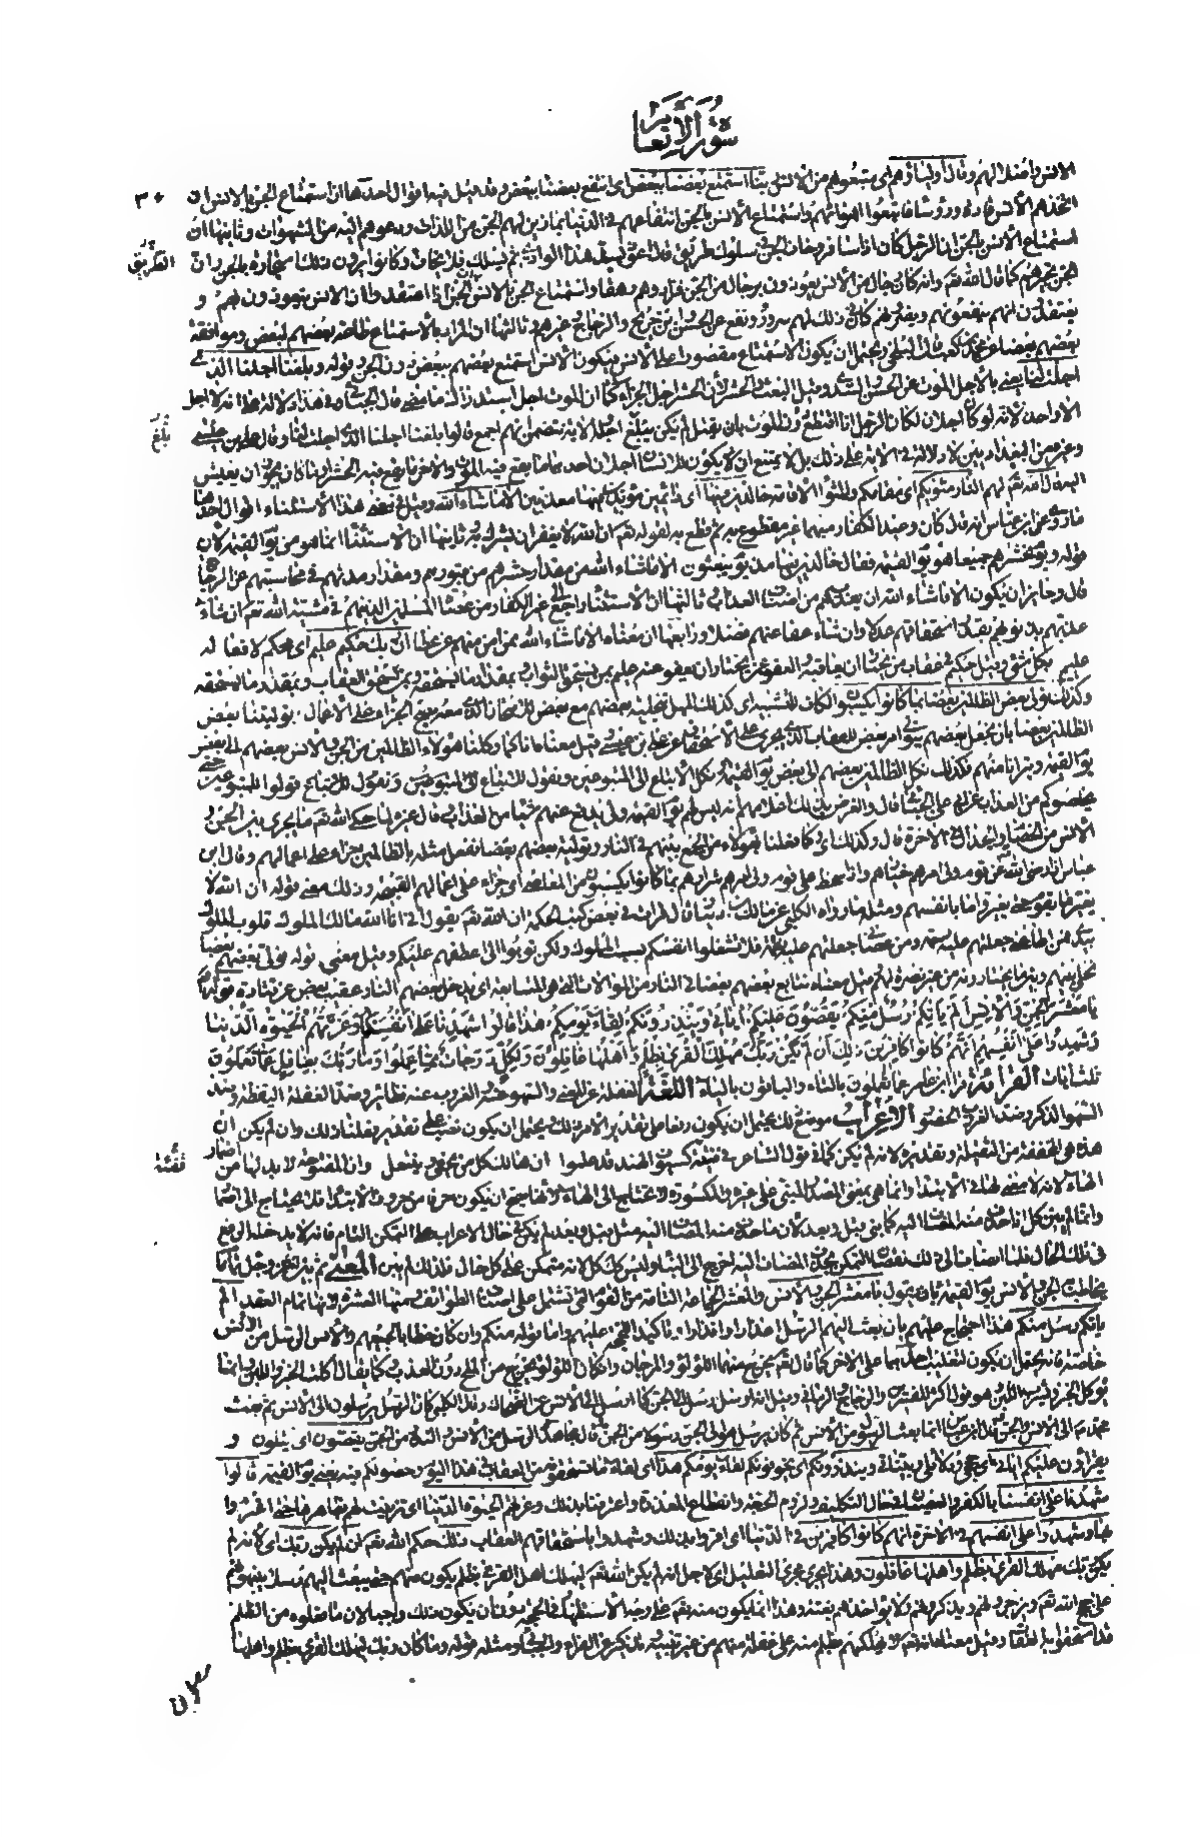 سورة الأنعام
الانس باضلالهم وقال اولياؤهم اى متبعوهم من الانس ربنا استمتع بعضنا ببعض اى انتفع بعضنا ببعض وقد قيل فيه اقوال احدها ان استمتاع الجن بالانس ان
اتخذهم الانس قادة ورؤساء فاتبعوا اهوائهم واستمتاع الانس بالجن انتفاعهم فى الدنيا بما زين لهم الجن من اللذات ودعوهم اليه من الشهوات وثانيها ان
استمتاع الانس بالجن ان الرجل كان اذا سافر وخاف الجن فى سلوك طريق قال اعوذ بسيد هذا الوادى ثم يسلك فلا يخاف وكانوا يرون ذلك استجارة بالجن وان
الجن يجيرهم كما قال الله تعالى وانه كان رجال من الانس يعوذون برجال من الجن فزادوهم رهقا واستمتاع الجن بالانس ان الجن اذا اعتقد وا ان الانس يتعوذون بهم و
يعتقدون انهم ينفعونهم ويضرونهم كان فى ذلك لهم سرور ونفع عن الحسن وابن جريج والزجاج وغيرهم وثالثها ان المراد بالاستمتاع طاعة بعضهم لبعض وموافقة
بعضهم بعضا عن محمد بن كعب قال البلخى ويحتمل ان يكون الاستمتاع مقصورا على الانس فيكون الانس استمتع بعضهم ببعض دون الجن وقوله وبلغنا اجلنا الذى
اجلت لنا يعنى بالاجل الموت عن الحسن والسدى وقيل البعث والحشر لأن الحشر اجل الجزاء كما ان الموت اجل استدراك ما مضى قال الجبائى وفى هذا دلالة على انه لا اجل
الا واحد لانه لو كان اجلان لكان الرجل اذا اقتطع دون الموت بان يقتل لم يكن بلغ اجله والاية تتضمن انهم اجمع قالوا بلغنا اجلنا الذى اجلت لنا وقال على بن عيسى
وغيره من البغداديين لا دلالة فى الاية على ذلك بل لا يمتنع ان يكون للانسان اجلان احدهما ما يقع فيه الموت والاخر ما يقع فيه الحشر او ما كان يجوز ان يعيش
اليه قال الله تعالى لهم النار مثويكم اى مقامكم والمثوى الاقامة خالدين فيها اى دائمين مؤبدين فيها معذبين الا ما شاء الله وقيل فى معنى هذا الاستثناء اقوال احدها
ما روى عن ابن عباس انه قال كان وعيد الكفار مبهما غير مقطوع به ثم قطع به لقوله تعالى ان الله لا يغفر ان يشرك به وثانيها ان الاستثناء انما هو من يوم القيمة لان
قوله ويوم نحشرهم جميعا هو يوم القيمة فقال خالدين فيها مذ يوم يبعثون الا ما شاء الله من مقدار حشرهم من قبورهم ومقدار مدتهم فى محاسبتهم عن الزجاج
قال وجائز ان يكون الا ما شاء الله ان يعذبهم من اصناف العذاب وثالثها ان الاستثناء راجع الى غير الكفار من عصاة المسلمين الذين هم فى مشية الله تعالى ان شاء
عذبهم بذنوبهم بقدر استحقاقهم عدلا وان شاء عفا عنهم فضلا ورابعها ان معناه الا ما شاء الله ممن امن منهم عن عطا ان ربك حكيم عليم اى محكم لافعاله
عليم بكل شئ وقيل حكيم فى عقاب من يختار ان يعاقبه والعفو عمن يختار ان يعفو عنه عليم بمن يستحق الثواب بمقدار ما يستحقه وبمن يستحق العقاب وبمقدار ما يستحقه
وكذلك نولى بعض الظالمين بعضا بما كانوا يكسبون الكاف للتشبيه اى كذلك المهل بتخلية بعضهم مع بعض للامتحان الذى معه يصح الجزاء على الاعمال توليتنا بعض
الظالمين بعضا بان نجعل بعضهم يتولى امر بعض للعقاب الذى يجرى على الاستحقاق عن على بن عيسى وقيل معناه انا كما وكلنا هؤلاء الظالمين من الجن والانس بعضهم الى بعض
يوم القيمة وتبرانا منهم فكذلك نكل الظالمين بعضهم الى بعض يوم القيمة ونكل الاتباع الى المتبوعين ونقول للاتباع قولوا للمتبوعين حتى
يخلصوكم من العذاب عن ابى على الجبائى قال والغرض بذلك اعلامهم انه ليس لهم يوم القيمة ولى يدفع عنهم شيئا من العذاب وقال غيره لما حكى الله تعالى ما يجرى بين الجن و
الانس من الخصام والجدال فى الاخرة قال وكذلك اى وكما فعلنا بهؤلاء من الجمع بينهم فى النار وتولية بعضهم بعضا نفعل مثله بالظالمين جزاء على اعمالهم وقال ابن
عباس اذا رضى الله عن قوم ولى امرهم خيارهم واذا سخط على قوم ولى امرهم شرارهم بما كانوا يكسبون من المعاصى اى جزاء على اعمالهم القبيحة وذلك معنى قوله ان الله لا
يغير ما بقوم حتى يغيروا ما بانفسهم ومثله ما رواه الكلبى عن مالك بن دينار قال قرات فى بعض كتب الحكمة ان الله تعالى يقول انى انا الله مالك الملوك قلوب الملوك
بيدى فمن اطاعنى جعلتهم عليه رحمة ومن عصانى جعلتهم عليه نقمة فلا تشغلوا انفسكم بسب الملوك ولكن توبوا الى اعطفهم عليكم وقيل معنى قوله نولى بعضهم بعضا
نخلى بينهم وبين ما يختارونه من غير نصرة لهم وقيل معناه نتابع بعضهم بعضا فى النار من الموالاة التى هى المتابعة اى يدخل بعضهم النار عقيب بعض عن قتادة قوله تعالى
يا معشر الجن والانس ألم يأتكم رسل منكم يقصون عليكم اياتى وينذرونكم لقاء يومكم هذا قالوا شهدنا على انفسنا وغرتهم الحيوة الدنيا
وشهدوا على انفسهم انهم كانوا كافرين ذلك ان لم يكن ربك مهلك القرى بظلم واهلها غافلون ولكل درجات مما عملوا وما ربك بغافل عما تعملون
ثلث ايات القراءة قرأ ابن عامر عما تعملون بالتاء والباقون بالياء اللغة الغفلة عن المعنى والسهو عنه والعزوب عنه نظائر وضد الغفلة اليقظة وضد
السهو الذكر وضد العزوب الحضور الاعراب موضع ذلك يحتمل ان يكون رفعا على تقدير الامر ذلك ويحتمل ان يكون نصبا على تقدير فعلنا ذلك وان لم يكن ان
هذه هى المخففة من الثقيلة وتقديره لانه لم يكن كما فى قول الشاعر فى فتية كسيوف الهند قد علموا ان هالك كل من يحفى وينتعل وان المفتوحة لا بد لها من اضمار
الهاء لانه لا معنى لها فى الابتداء وانما هى بمعنى المصدر المبنى على غيره والمكسورة لا تحتاج الى الهاء لانها يصح ان يكون حرفا من حروف الابتداء فلا يحتاج الى اضمار
وانما لم يبن كل اذا حذف منه المضاف اليه كما بنى قبل وبعد لأن ما حذف منه المضاف اليه مثل قبل وبعد لم يكن فى حال الاعراب على التمكن التام فانه لا يدخله الرفع
فى تلك الحال فلما انضاف الى ذلك نقصان التمكن بحذف المضاف اليه اخرج الى البناء وليس كذلك كل لانه متمكن على كل حال فلذلك لم يبن المعنى ثم بين تعالى عز وجل تمام ما
يخاطب به الجن والانس يوم القيمة بان يقول يا معشر الجن والانس والمعشر الجماعة التامة من القوم التى تشتمل على اصناف الطوائف ومنه العشرة لانها تمام العقد الم
يأتكم رسل منكم هذا احتجاج عليهم بان بعث اليهم الرسل اعذارا وانذارا وتاكيدا للحجة عليهم واما قوله منكم وان كان خطابا لجميعهم والرسل من الانس
خاصة فانه يحتمل ان يكون لتغليب احدهما على الاخر كما قال تعالى يخرج منهما اللؤلؤ والمرجان وان كان اللؤلؤ يخرج من الملح دون العذب وكما يقال اكلت الخبز واللبن وانما
يؤكل الخبز ويشرب اللبن وهو قول اكثر المفسرين والزجاج والرمانى وقيل انه ارسل رسل الى الجن كما ارسل الى الانس عن الضحاك وقال الكلبى كان الرسل يرسلون الى الانس ثم بعث
محمد ص الى الانس والجن وقال ابن عباس انما بعث الرسول من الانس ثم كان يرسل هو الى الجن رسولا من الجن وقال مجاهد الرسل من الانس والنذر من الجن يقصون اى يتلون و
يقرأون عليكم اياتى اى حججى ودلائلى وبيناتى وينذرونكم اى يخوفونكم لقاء يومكم هذا اى لقاء ما تستحقونه من العقاب فى هذا اليوم وحصولكم فيه يعنى يوم القيمة قالوا
شهدنا على انفسنا بالكفر والعصيان فى حال التكليف ولزوم الحجة وانقطاع المعذرة واعترفنا بذلك وغرتهم الحيوة الدنيا اى تزينت لهم بظاهرها حتى اغتروا
بها وشهدوا على انفسهم فى الاخرة انهم كانوا كافرين فى الدنيا اى اقروا بذلك وشهدوا باستحقاقهم العقاب ذلك حكم الله تعالى ان لم يكن ربك اى لانه لم
يكن ربك مهلك القرى بظلم واهلها غافلون وهذا يجرى مجرى التعليل اى لاجل انه لم يكن الله تعالى ليهلك اهل القرى بظلم يكون منهم حتى يبعث اليهم رسلا ينبهونهم
على حجج الله تعالى ويزجرونهم ويذكرونهم ولا يؤاخذهم بغتة وهذا انما يكون منه تعالى على وجه الاستظهار فى الحجة دون ان يكون ذلك واجبا لان ما فعلوه من الظلم
قد استحقوا به العقاب وقيل معناه انه تعالى لا يهلكهم بظلم منه على غفلة منهم من غير تنبيه وتذكير عن الفراء والجبائى ومثله قوله وما كان ربك ليهلك القرى بظلم واهلها